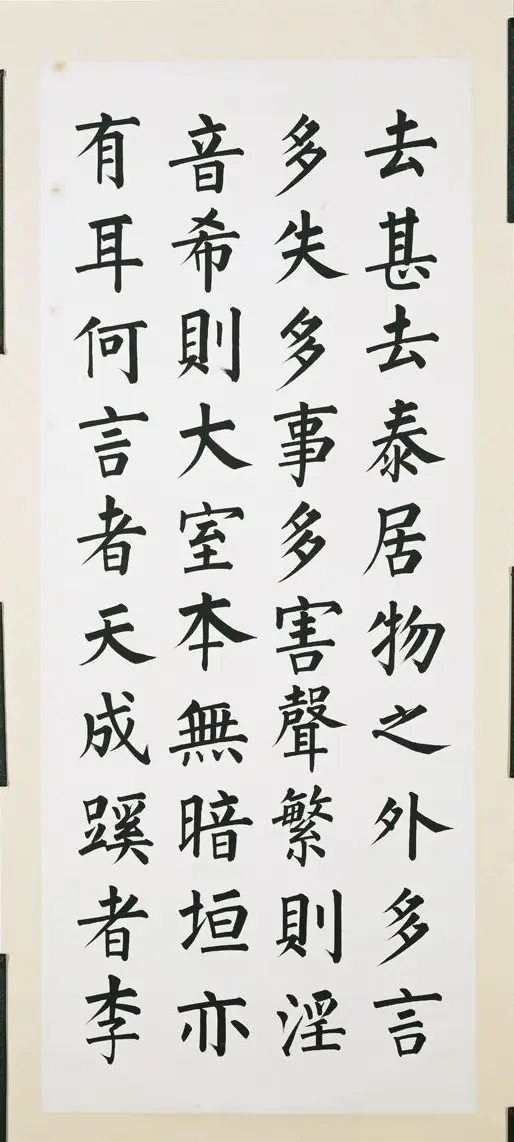 去甚去泰居物之外多言
多失多事多害聲繁則淫
音希則大室本無暗垣亦
有耳何言者天成蹊者李